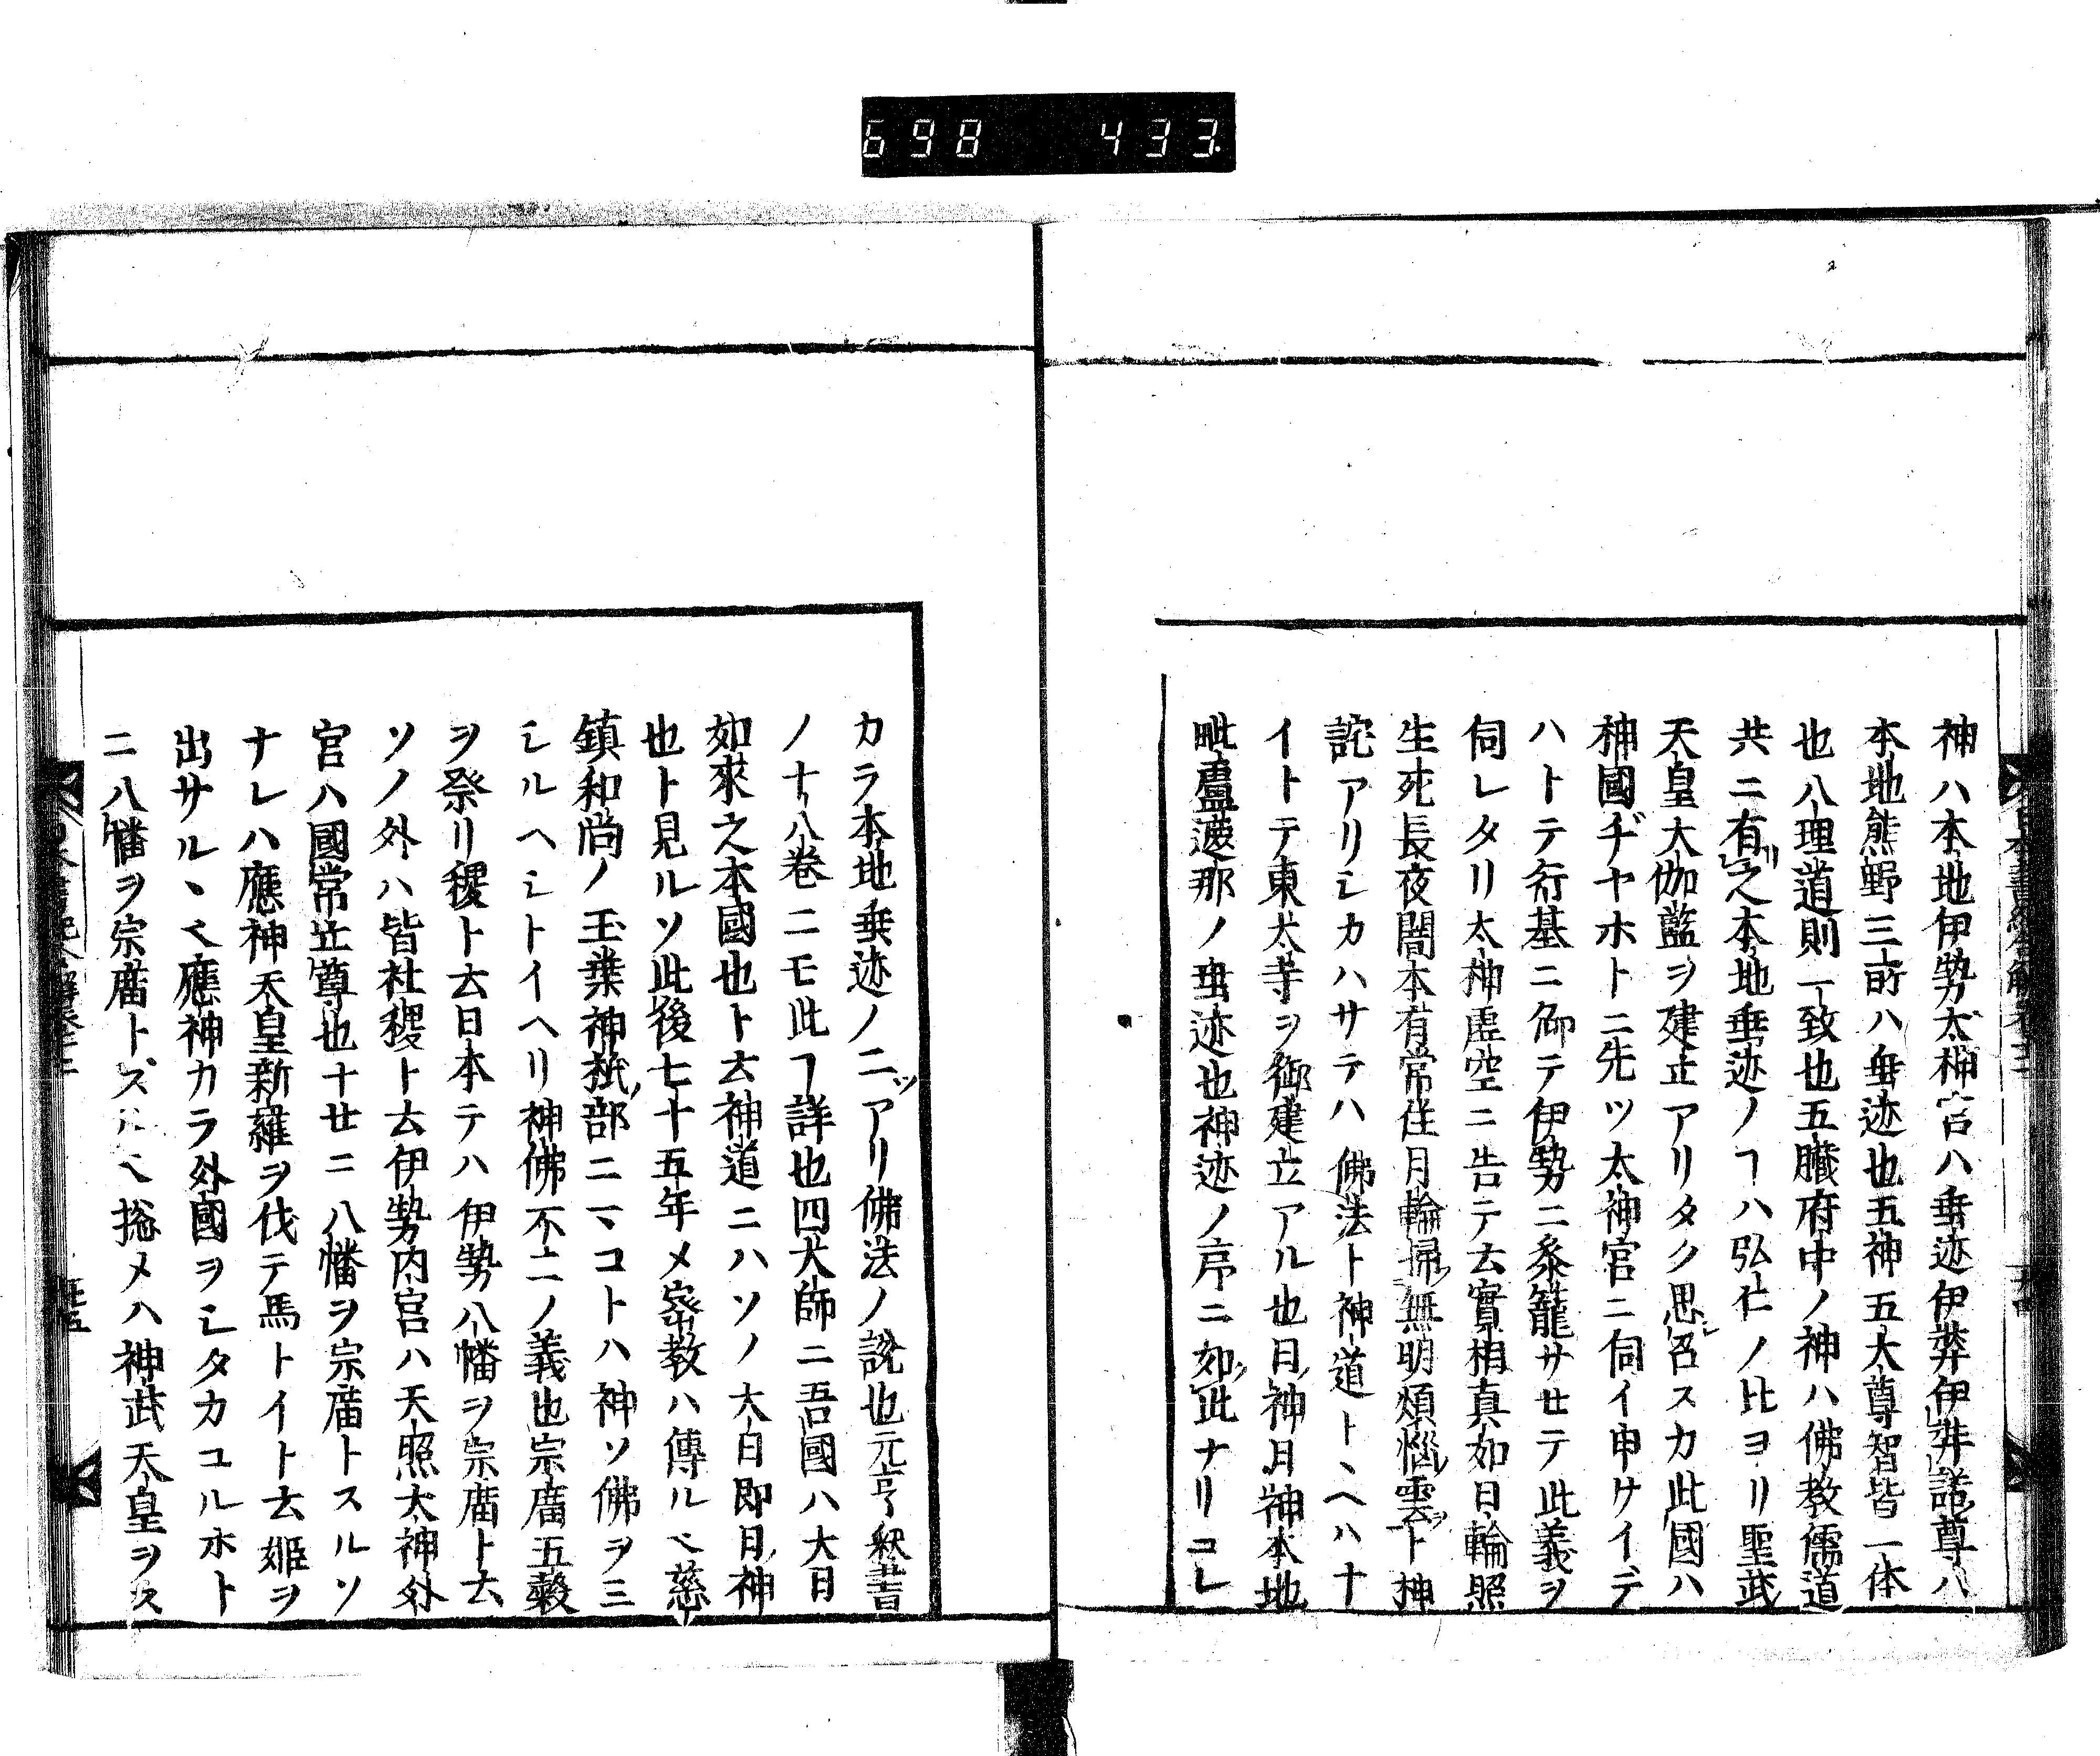 698 433
神ハ本地伊勢太神宮ハ垂迹伊弉伊弉諾尊ハ
本地熊野三所ハ垂迹也五神五大尊智皆一体
也八理道則一致也五臓府中ノ神ハ佛教儒道
共ニ有之本地垂迹ノヿハ弘仁ノ比ヨリ聖武
天皇大伽藍ヲ建立アリタク思召スカ此國ハ
神國ヂヤホトニ先ツ太神宮ニ伺イ申ケイデ
ハトテ行基ニ仰テ伊勢ニ参籠サセテ此義ヲ
伺レタリ太神虚空ニ告テ云實相真如日輪照
生死長夜闇本有常住月輪掃無明煩惱雲ト神
詫アリシカハサテハ佛法ト神道トヽヘハナ
イトテ東大寺ヲ御建立アル也日神月神本地
毗盧遮那ノ垂迹也神迹ノ序ニ如此ナリコレ
カラ本地垂迹ノ二ツアリ佛法ノ說也元亨釈書
ノ十八巻ニモ此ヿ詳也四大師ニ吾國ハ大日
如來之本國也ト云神道ニハソノ大日即日神
也ト見ルソ此後七十五年メ密教ハ傳ルヽ慈
鎮和尚ノ玉葉神祇部ニヽコトハ神ソ佛ヲ三
シルヘシトイヘリ神佛不二ノ義也宗廣五穀
ヲ祭リ稷ト云日本テハ伊勢八幡ヲ宗廣ト云
ソノ外ハ皆社稷ト云伊勢内宮ハ天照太神外
宮ハ國常立尊也十廿ニ八幡ヲ宗廣トスルソ
ナレハ應神天皇新羅ヲ伐テ馬トイト云姫ヲ
出サルヽヽ應神カラ外國ヲシタカユルホト
ニ八幡ヲ宗廣トズ ヽ捴メハ神武天皇ヲス